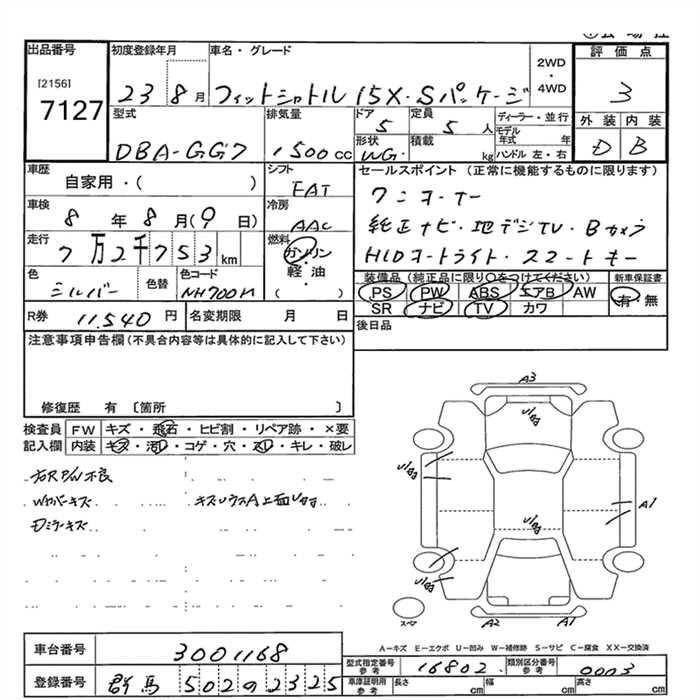 出品番号
[2156]
7127
初度登録年月
23 8月
車名・グレード
フィットシャトル 15X・Sパッケージ
2WD
・
4WD
評価点
3
外装 内装
D B
型式
DBA-GG7
排気量
1500cc
ドア
5
定員
5人
形状
WG
積載
kg
ディーラー・並行
モデル年式 年
ハンドル 左・右
車歴
自家用・( )
シフト
FAT
車検
8年8月(9日)
冷房
AAC
走行
7万2千753km
燃料
ガソリン
・
軽油
・
( )
色
シルバー
色替
色コード
NH700M
R券 11,540円
名変期限 月 日
セールスポイント (正常に機能するものに限ります)
ワンオーナー
純正ナビ・地デジTV・Bカメラ
HIDヨートライト・スマートキー
装備品(純正品に限り○をつけてください)
新車保証書
PS PW ABS エアB AW
SR ナビ TV カワ
有 無
後日品
注意事項申告欄(不具合内容等は具体的に記入して下さい)
修復歴 有〔箇所 〕
検査員記入欄
FW キズ・飛石・ヒビ割・リペア跡・×要
内装 キズ・汚れ・コゲ・穴・スレ・キレ・破レ
右RP/W不良
Wカバーキズ
Dミラーキズ
A3
Uきず
Uきず
Uきず
A1
Uきず
スペア
A2
A1
A－キズ E－エクボ U－凹み W－補修跡 S－サビ C－腐食 XX－交換済
車台番号 3001168
登録番号 群馬 502 の 2325
型式指定番号参考 16802
類別区分番号参考 0003
車庫証明用参考 長さ cm 幅 cm 高さ cm